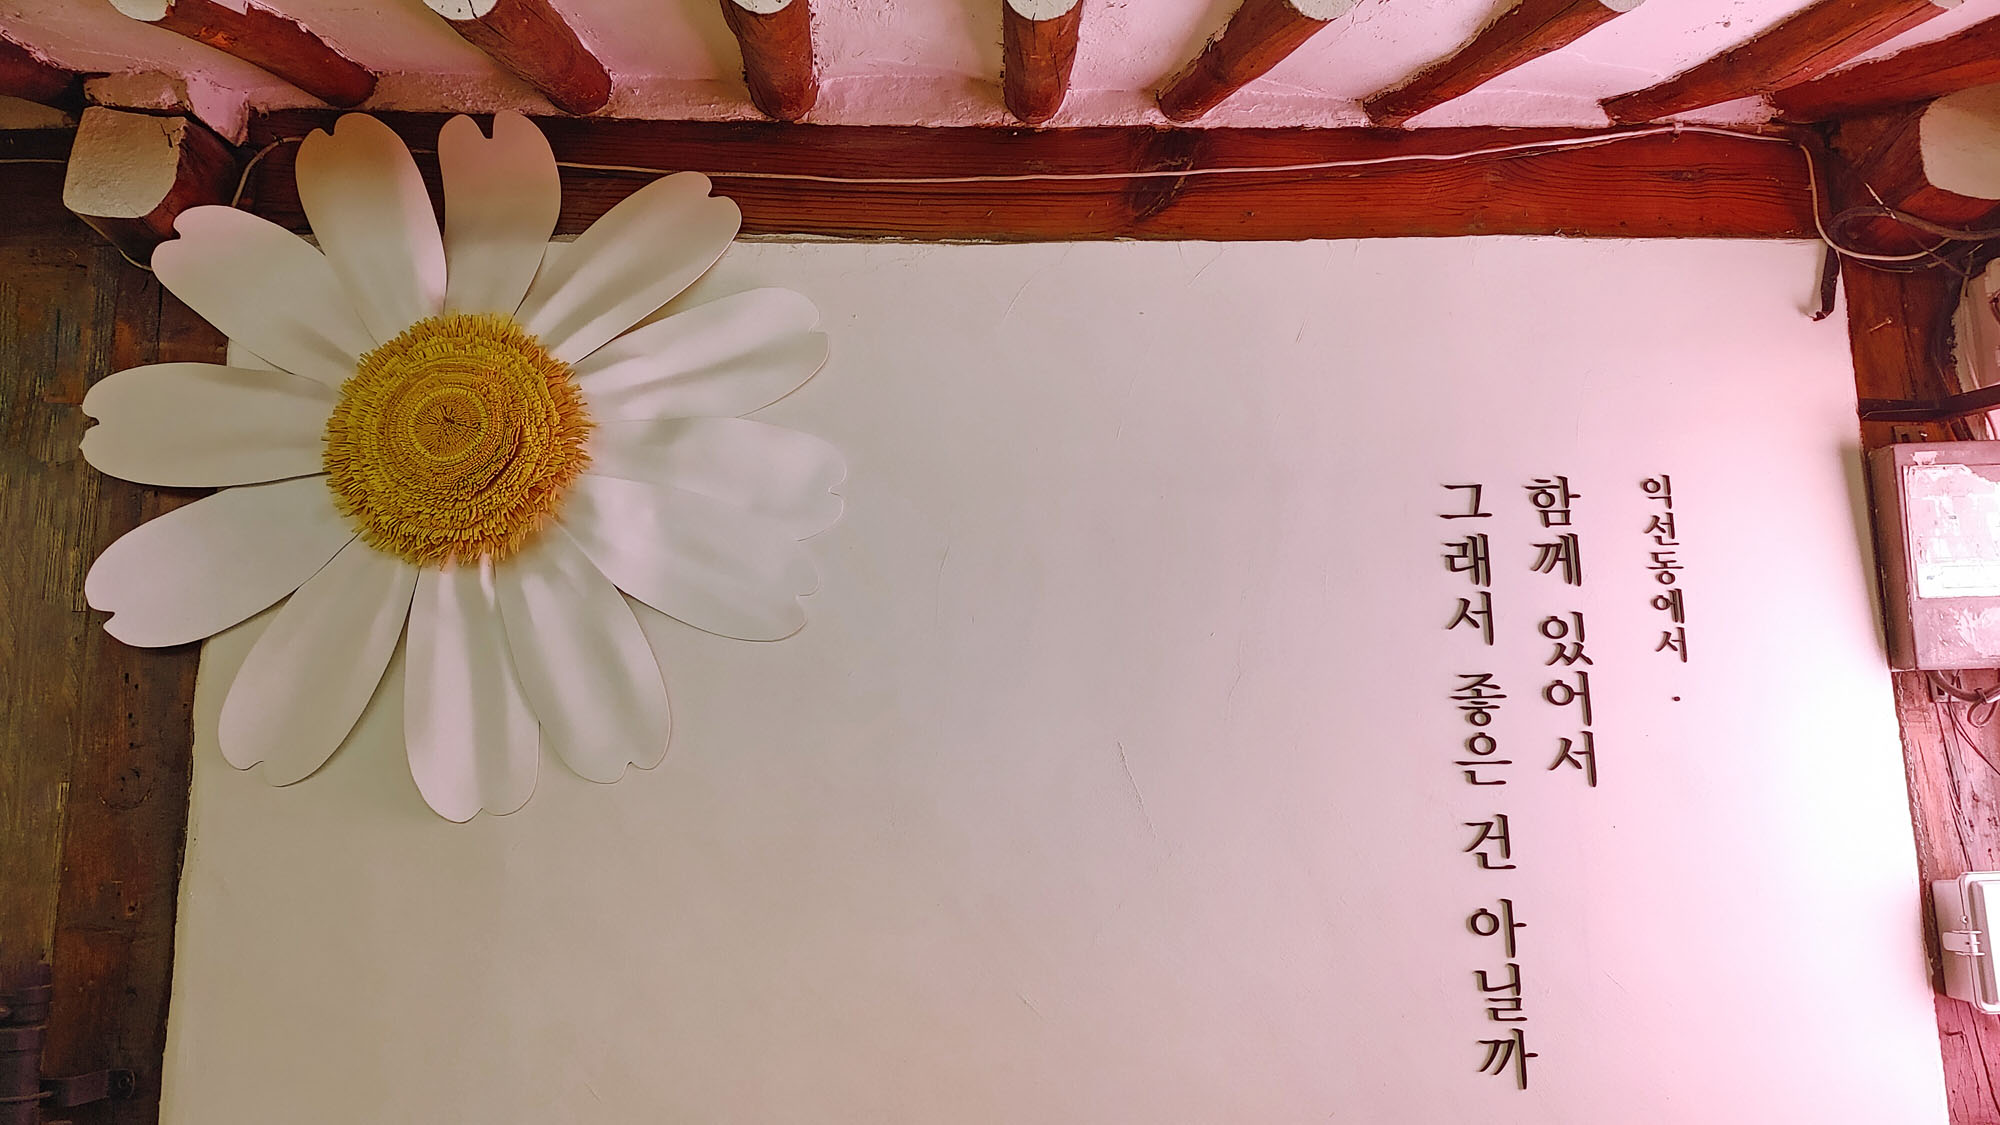 익선동에서 .
함께 있어서
그래서 좋은 건 아닐까